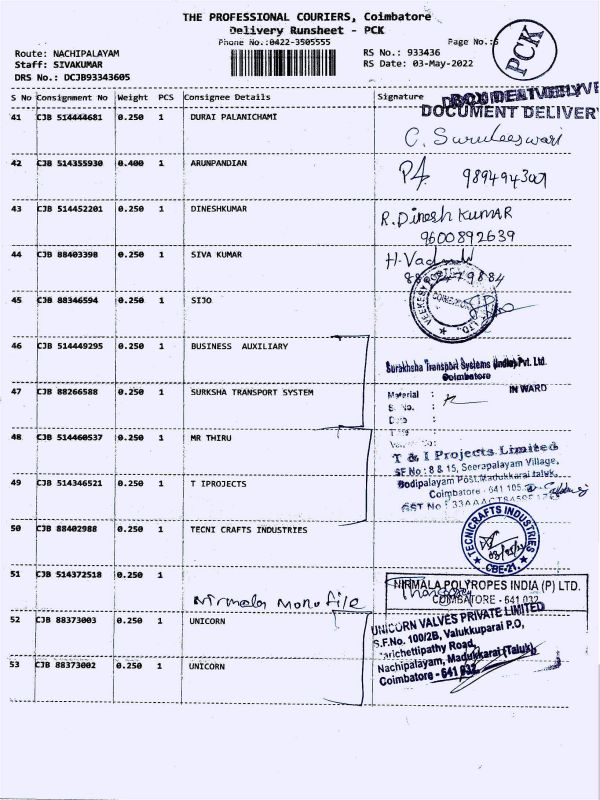 THE PROFESSIONAL COURIERS, Coimbatore
Delivery Runsheet - PCK
Phone No.:0422-3505555
Page No.:6
PCK
Route: NACHIPALAYAM
Staff: SIVAKUMAR
DRS No.: DCJB93343605
RS No.: 933436
RS Date: 03-May-2022
S No Consignment No Weight PCS Consignee Details Signature
DOCUMENT DELIVERY
41 CJB 514444681 0.250 1 DURAI PALANICHAMI
C. Suruleeswari
42 CJB 514355930 0.400 1 ARUNPANDIAN
43 CJB 514452201 0.250 1 DINESHKUMAR R.Dinesh KUMAR
9600892639
44 CJB 88403398 0.250 1 SIVA KUMAR
45 CJB 88346594 0.250 1 SIJO
46 CJB 514449295 0.250 1 BUSINESS AUXILIARY
Suraksha Transport Systems (India) Pvt. Ltd.
Coimbatore
47 CJB 88266588 0.250 1 SURKSHA TRANSPORT SYSTEM
IN WARD
Material :
S. No. :
Date :
48 CJB 514460537 0.250 1 MR THIRU
T & I Projects Limited
SF No : 8 & 15, Seerapalayam Village,
49 CJB 514346521 0.250 1 T IPROJECTS
Bodipalayam Post, Madukkarai taluk,
Coimbatore - 641 105.
GST No :
50 CJB 88402988 0.250 1 TECNI CRAFTS INDUSTRIES
TECNICRAFTS INDUSTRIES
CBE-21
51 CJB 514372518 0.250 1
Nirmala Mono file
NIRMALA POLYROPES INDIA (P) LTD.
COIMBATORE - 641 032
52 CJB 88373003 0.250 1 UNICORN
UNICORN VALVES PRIVATE LIMITED
S.F.No. 100/2B, Valukkuparai P.O,
53 CJB 88373002 0.250 1 UNICORN
Marichettipathy Road,
Nachipalayam, Madukkarai (Taluk)
Coimbatore - 641 032